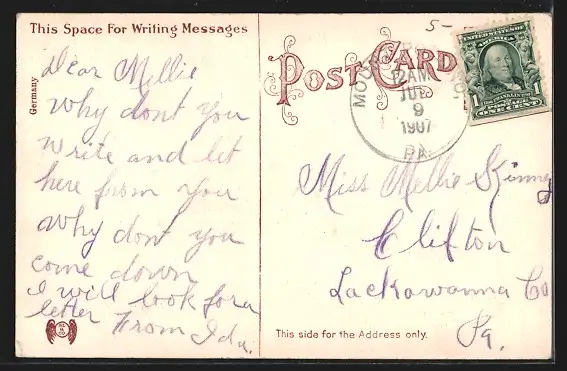 This Space For Writing Messages
Germany
Dear Mellie
Why dont you
write and let
here from you
Why dont you
come down
I will look for a
letter From Ida.
POST CARD
12 AM
9
1907
PA.
UNITED STATES OF
AMERICA
1 1
POSTAGE
ONE CENT
Miss Mellie Skinner
Clifton
Lackawanna Co
Pa.
This side for the Address only.